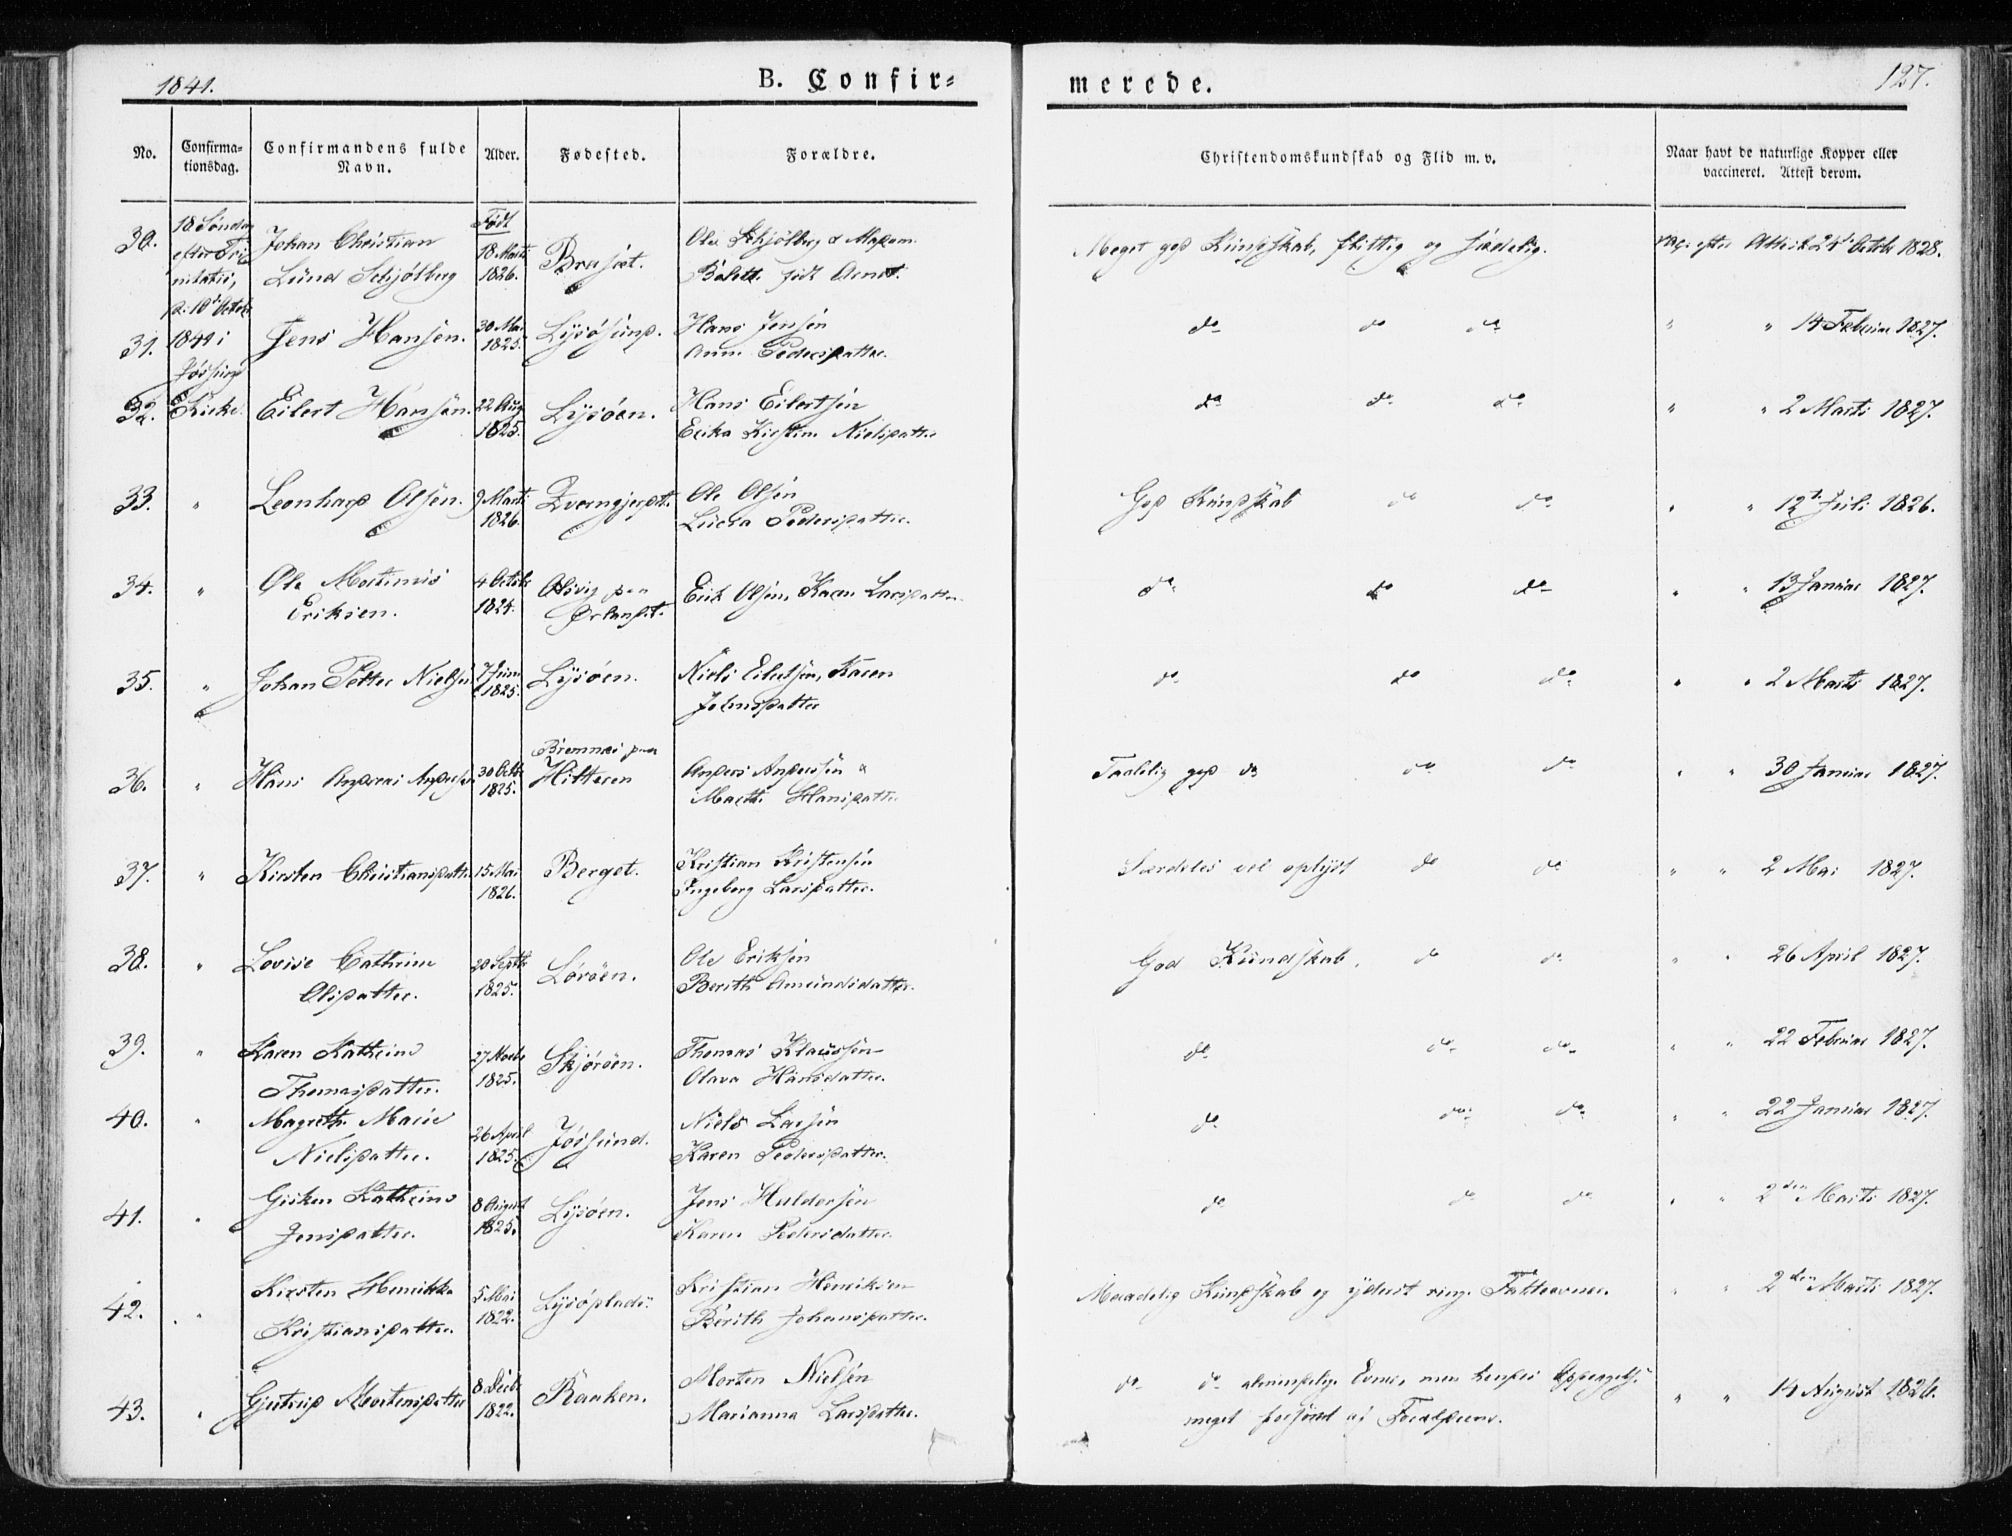 1841.
B. Confir=
merede.
127.
No.
Confirma-
tionsdag.
Confirmandens fulde
Navn.
Alder.
Fødested.
Forældre.
Christendomskundskab og Flid m. v.
Naar havt de naturlige Kopper eller
vaccineret. Attest derom.
30. 18 Søndag Johan Christian Født Ole Schjølberg &
efter Tri Lund Schjølberg 18 Marts født
nitatis, 1826. Meget god Kundskab, flittig og sædelig. vac: efter Attest 24d Octobr 1828.
31. 1841 i Jens Hansen. 30 Mai 1825. Lysøsund. Hans Jensen
Anne Pedersdatter. do do do " " 14 Februar 1827.
Jøssund
32. Kirke. Eilert Hansen. 22 Aug 1825. Lysøen. Hans Eilertsen
Erika Kirstine Nielsdatter do do do " " 2 Marts 1827.
33. " Leonhard Olsen. 9 Marts 1826. Ole Olsen
Pedersdatter. God Kundskab do do " " 12t Juli 1826.
34. " Ole Mortinus
Eriksen. 4 Octobr 1824. Olsvig paa
Ørlandet. Erik Olsen, Karen Larsdatter. do do do " " 13 Januar 1827.
35. " Johan Petter Nielsen 7 Juni 1825. Lysøen. Niels Eilertsen, Karen
Johnsdatter do do do " " 2 Marts 1827.
36. " Hans Andreas Andersen 30 Octbr 1825. Bremnes paa
Hitteren Anders Anderssen &
Marth Hansdatter Taalelig god do do do " " 30 Januar 1827.
37. " Kirsten Christiansdatter 15 Mai 1826. Berget. Kristian Kristensen
Ingeborg Larsdatter. Særdeles vel oplyst do do " " 2 Mai 1827.
38. " Lovise Cathrine
Olsdatter. 20 Septbr 1825. Lørøen. Ole Eriksen
Berith Amundsdatter. God Kundskab. do do " " 26 April 1827.
39. " Karen Kathrine
Thomasdatter. 27 Novbr 1825. Skjørøen. Thomas Klaussen
Olava Hansdatter. do do do " " 22 Februar 1827.
40. " Magrethe Marie
Nielsdatter. 26 April 1825. Jøssund. Niels Larsen
Karen Pedersdatter. do do do " " 22 Januar 1827.
41. " Gisken Kathrine
Jensdatter. 8 August 1825. Lysøen. Jens Haldorsen
Karen Pedersdatter. do do do " " 2den Marts 1827.
42. " Kirsten Henrikke
Kristiansdatter. 5 Mai 1822. Lysøplads. Kristian Henriksen
Berith Johansdatter. Maadelig Kundskab og yderst ringe Fatteevner. " " 2den Marts 1827.
43. " Gjertrud Mortensdatter 8 Decbr 1822. Raaken. Morten Nielsen
Marianna Larsdatter. do do almindelige Evner, men hendes Opdragelse
meget forsømt af Forældrene. " " 14 August 1826.